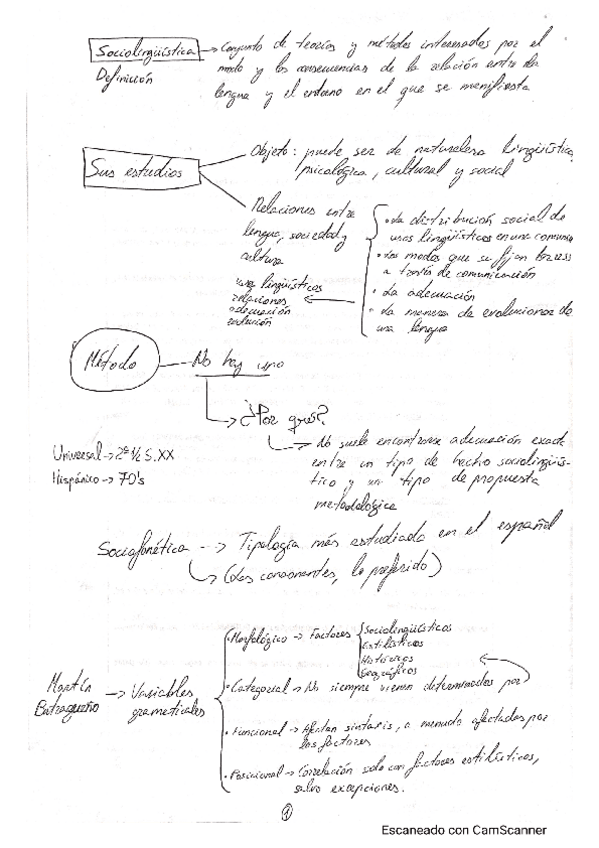 Sociolingüística → Conjunto de teorías y métodos interesados por el
Definición
modo y las consecuencias de la relación entre la
lengua y el entorno en el que se manifiesta
Sus estudios
Objeto: puede ser de naturaleza lingüística,
psicológica, cultural y social
Relaciones entre
lengua, sociedad y
cultura
• La distribución social de
usos lingüísticos en una comuni
• Los modos que se fijan
a través de comunicación
• La adecuación
• La manera de evolucionar de
una lengua
usos lingüísticos
relaciones
adecuación
evolución
Método — No hay uno
¿Por qué?
→ No suele encontrarse adecuación exacta
entre un tipo de hecho sociolingüís-
tico y un tipo de propuesta
metodológica
Universal → 2ª ½ S. XX
Hispánico → 70's
Sociofonética --> Tipología más estudiada en el español
(Las consonantes, lo preferido)
Martín
Butragueño → Variables
gramaticales
• Morfológico → Factores
Sociolingüísticos
Estilísticos
Históricos
Geográficos
• Categorial → No siempre vienen determinados por
• Funcional → Afectan sintaxis, a menudo afectados por
los factores
• Posicional → Correlación solo con factores estilísticos,
salvo excepciones.
1
Escaneado con CamScanner